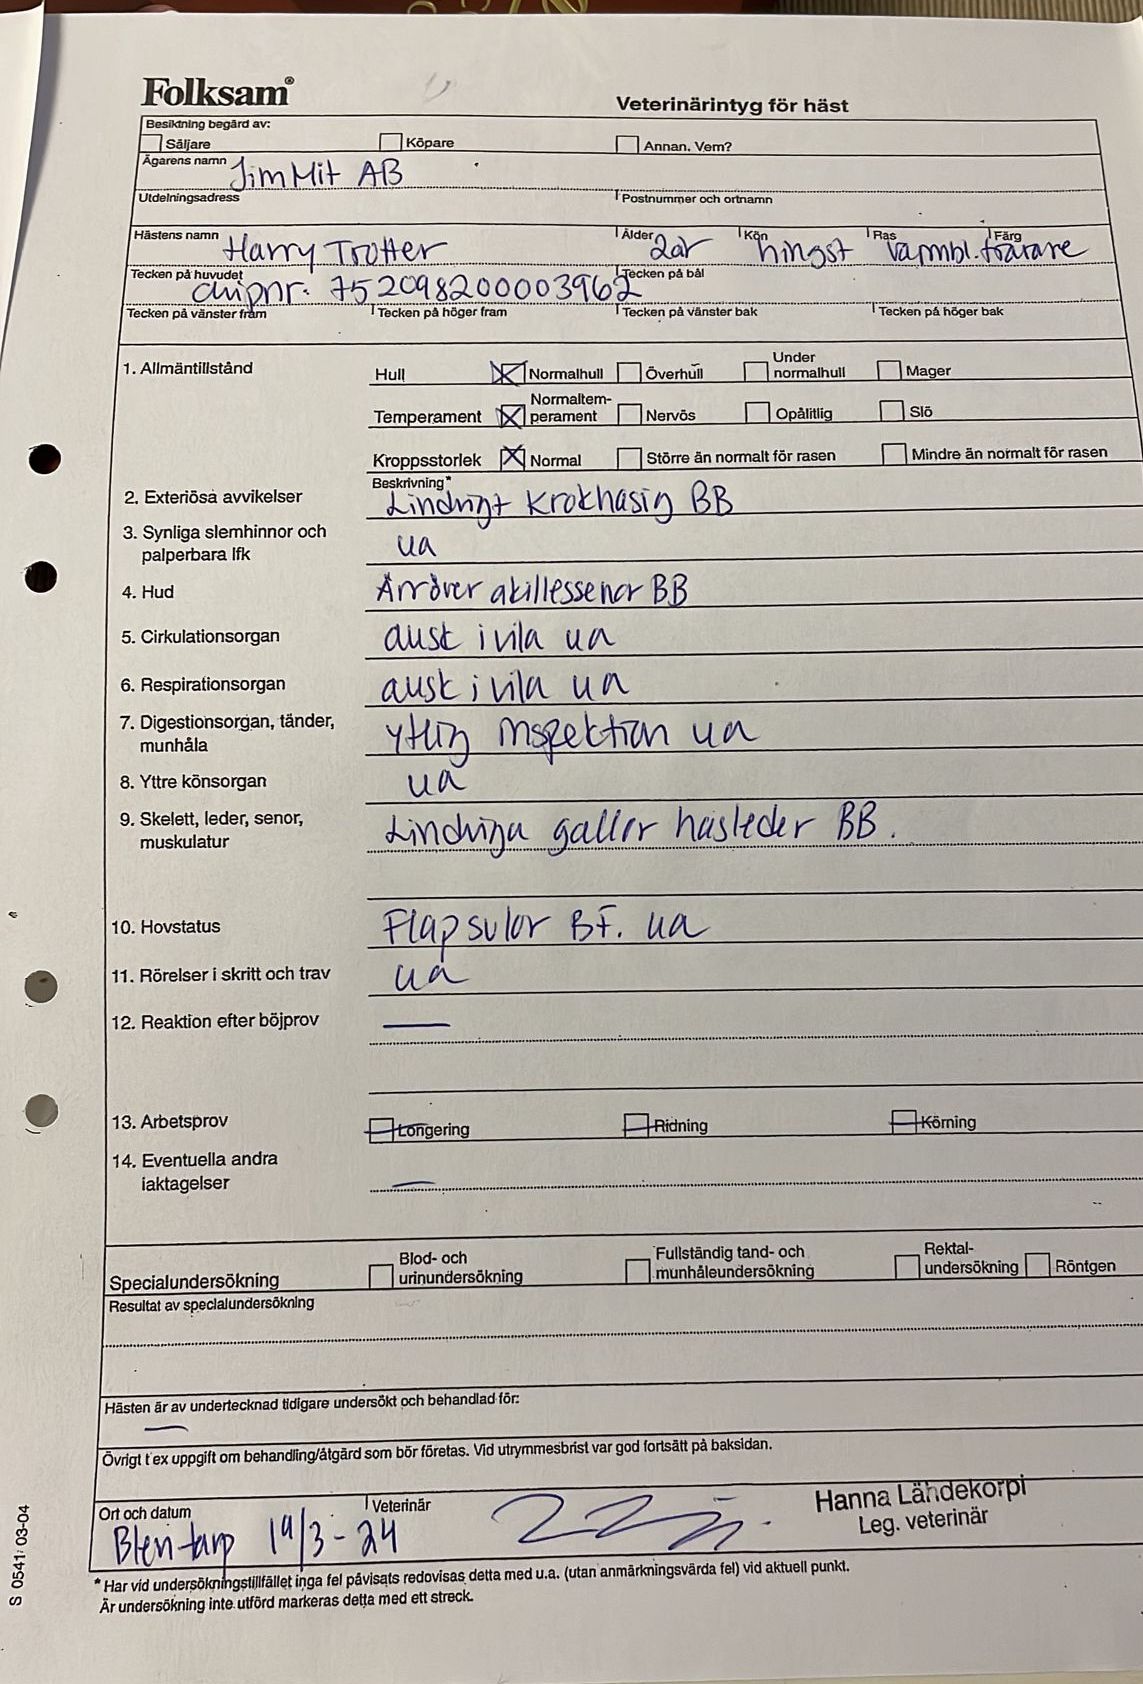 Folksam®
Veterinärintyg för häst
Besiktning begärd av:
Säljare Köpare Annan. Vem?
Ägarens namn JimMit AB
Utdelningsadress Postnummer och ortnamn
Hästens namn Harry Trotter Ålder 2år Kön hingst Ras varmbl. travare Färg
Tecken på huvudet chipnr. 752098200003962 Tecken på bål
Tecken på vänster fram Tecken på höger fram Tecken på vänster bak Tecken på höger bak
1. Allmäntillstånd Hull Normalhull Överhull Under normalhull Mager
Temperament Normaltem-perament Nervös Opålitlig Slö
Kroppsstorlek Normal Större än normalt för rasen Mindre än normalt för rasen
Beskrivning*
2. Exteriösa avvikelser Lindrigt krokhasig BB
3. Synliga slemhinnor och
palperbara lfk ua
4. Hud Ärr över akillessenor BB
5. Cirkulationsorgan ausk i vila ua
6. Respirationsorgan ausk i vila ua
7. Digestionsorgan, tänder,
munhåla yttlig inspektion ua
8. Yttre könsorgan ua
9. Skelett, leder, senor,
muskulatur Lindriga gallor hasleder BB.
10. Hovstatus Flapsulor BF. ua
11. Rörelser i skritt och trav ua
12. Reaktion efter böjprov —
13. Arbetsprov Longering Ridning Körning
14. Eventuella andra
iaktagelser —
Specialundersökning Blod- och urinundersökning Fullständig tand- och munhåleundersökning Rektal-undersökning Röntgen
Resultat av specialundersökning
Hästen är av undertecknad tidigare undersökt och behandlad för:
—
Övrigt t ex uppgift om behandling/åtgärd som bör företas. Vid utrymmesbrist var god fortsätt på baksidan.
Ort och datum Veterinär
Blentarp 19/3-24
Hanna Lähdekorpi
Leg. veterinär
* Har vid undersökningstillfället inga fel påvisats redovisas detta med u.a. (utan anmärkningsvärda fel) vid aktuell punkt.
Är undersökning inte utförd markeras detta med ett streck.
S 0541 03-04